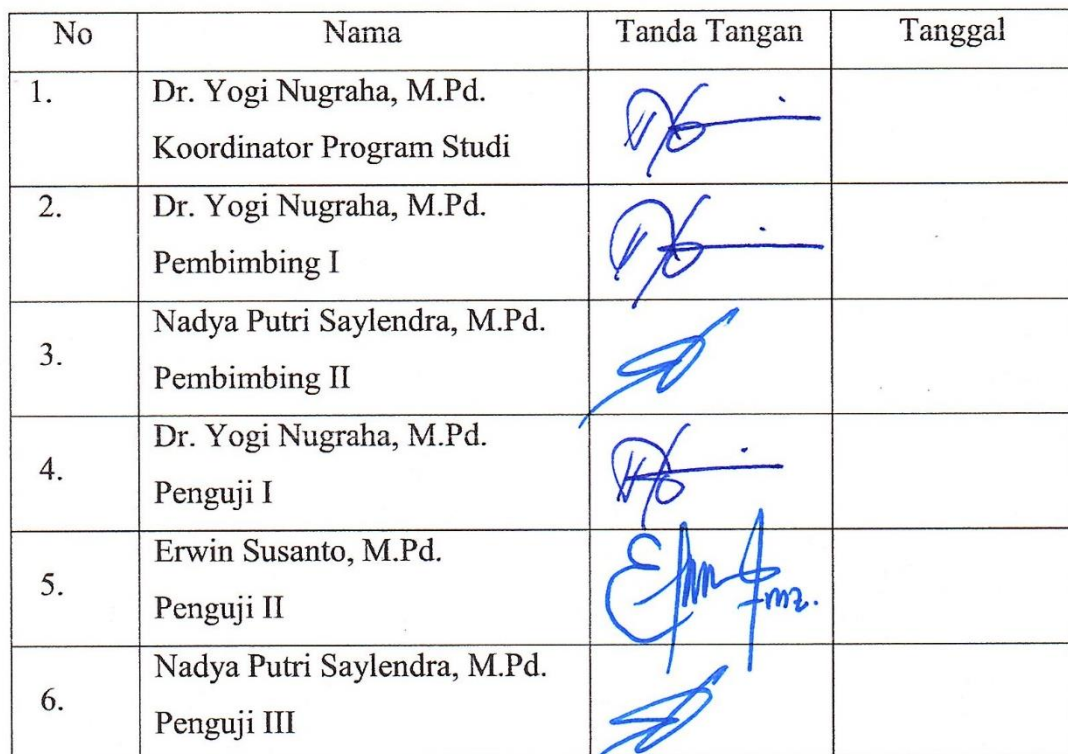 No Nama Tanda Tangan Tanggal
1. Dr. Yogi Nugraha, M.Pd.
Koordinator Program Studi
2. Dr. Yogi Nugraha, M.Pd.
Pembimbing I
3. Nadya Putri Saylendra, M.Pd.
Pembimbing II
4. Dr. Yogi Nugraha, M.Pd.
Penguji I
5. Erwin Susanto, M.Pd.
Penguji II
6. Nadya Putri Saylendra, M.Pd.
Penguji III